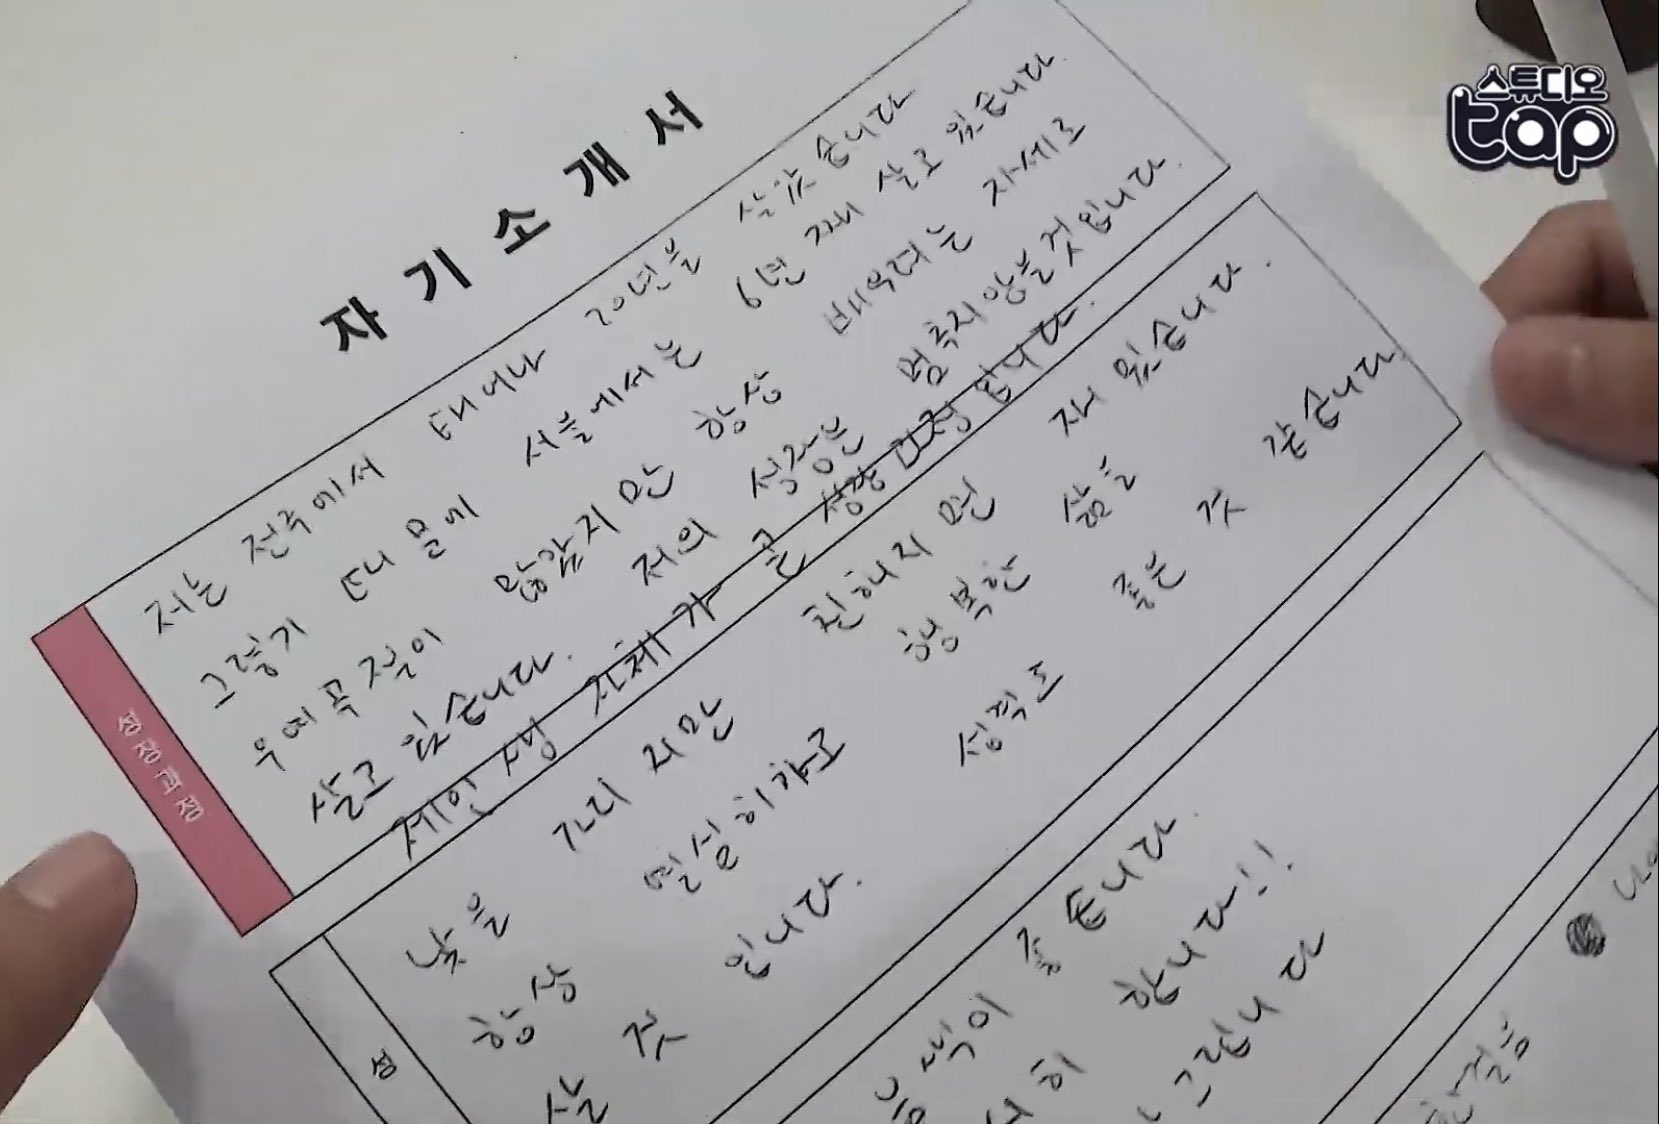 스튜디오
tap
자기소개서
성장과정
저는 전주에서 태어나 20년을 살았습니다
그렇기 때문에 서울에서는 6년째 살고 있습니다.
우여곡절이 많았지만 항상 배우려는 자세로
살고 있습니다. 저의 성장은 멈추지 않을 것입니다.
제 인생 자체가 곧 성장과정입니다.
성
낯을 가리지만 친해지면 재밌습니다.
항상 열심히하고 행복한 삶을
살 것 입니다. 성격도 좋은 것 같습니다.
좋습니다.
합니다!!
그럽니다